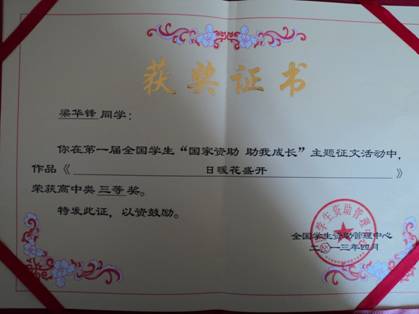 获奖证书
梁华锋 同学：
你在第一届全国学生“国家资助 助我成长”主题征文活动中，
作品《 日暖花盛开 》
荣获高中类 三等 奖。
特发此证，以资鼓励。
全国学生资助管理中心
二〇一三年四月